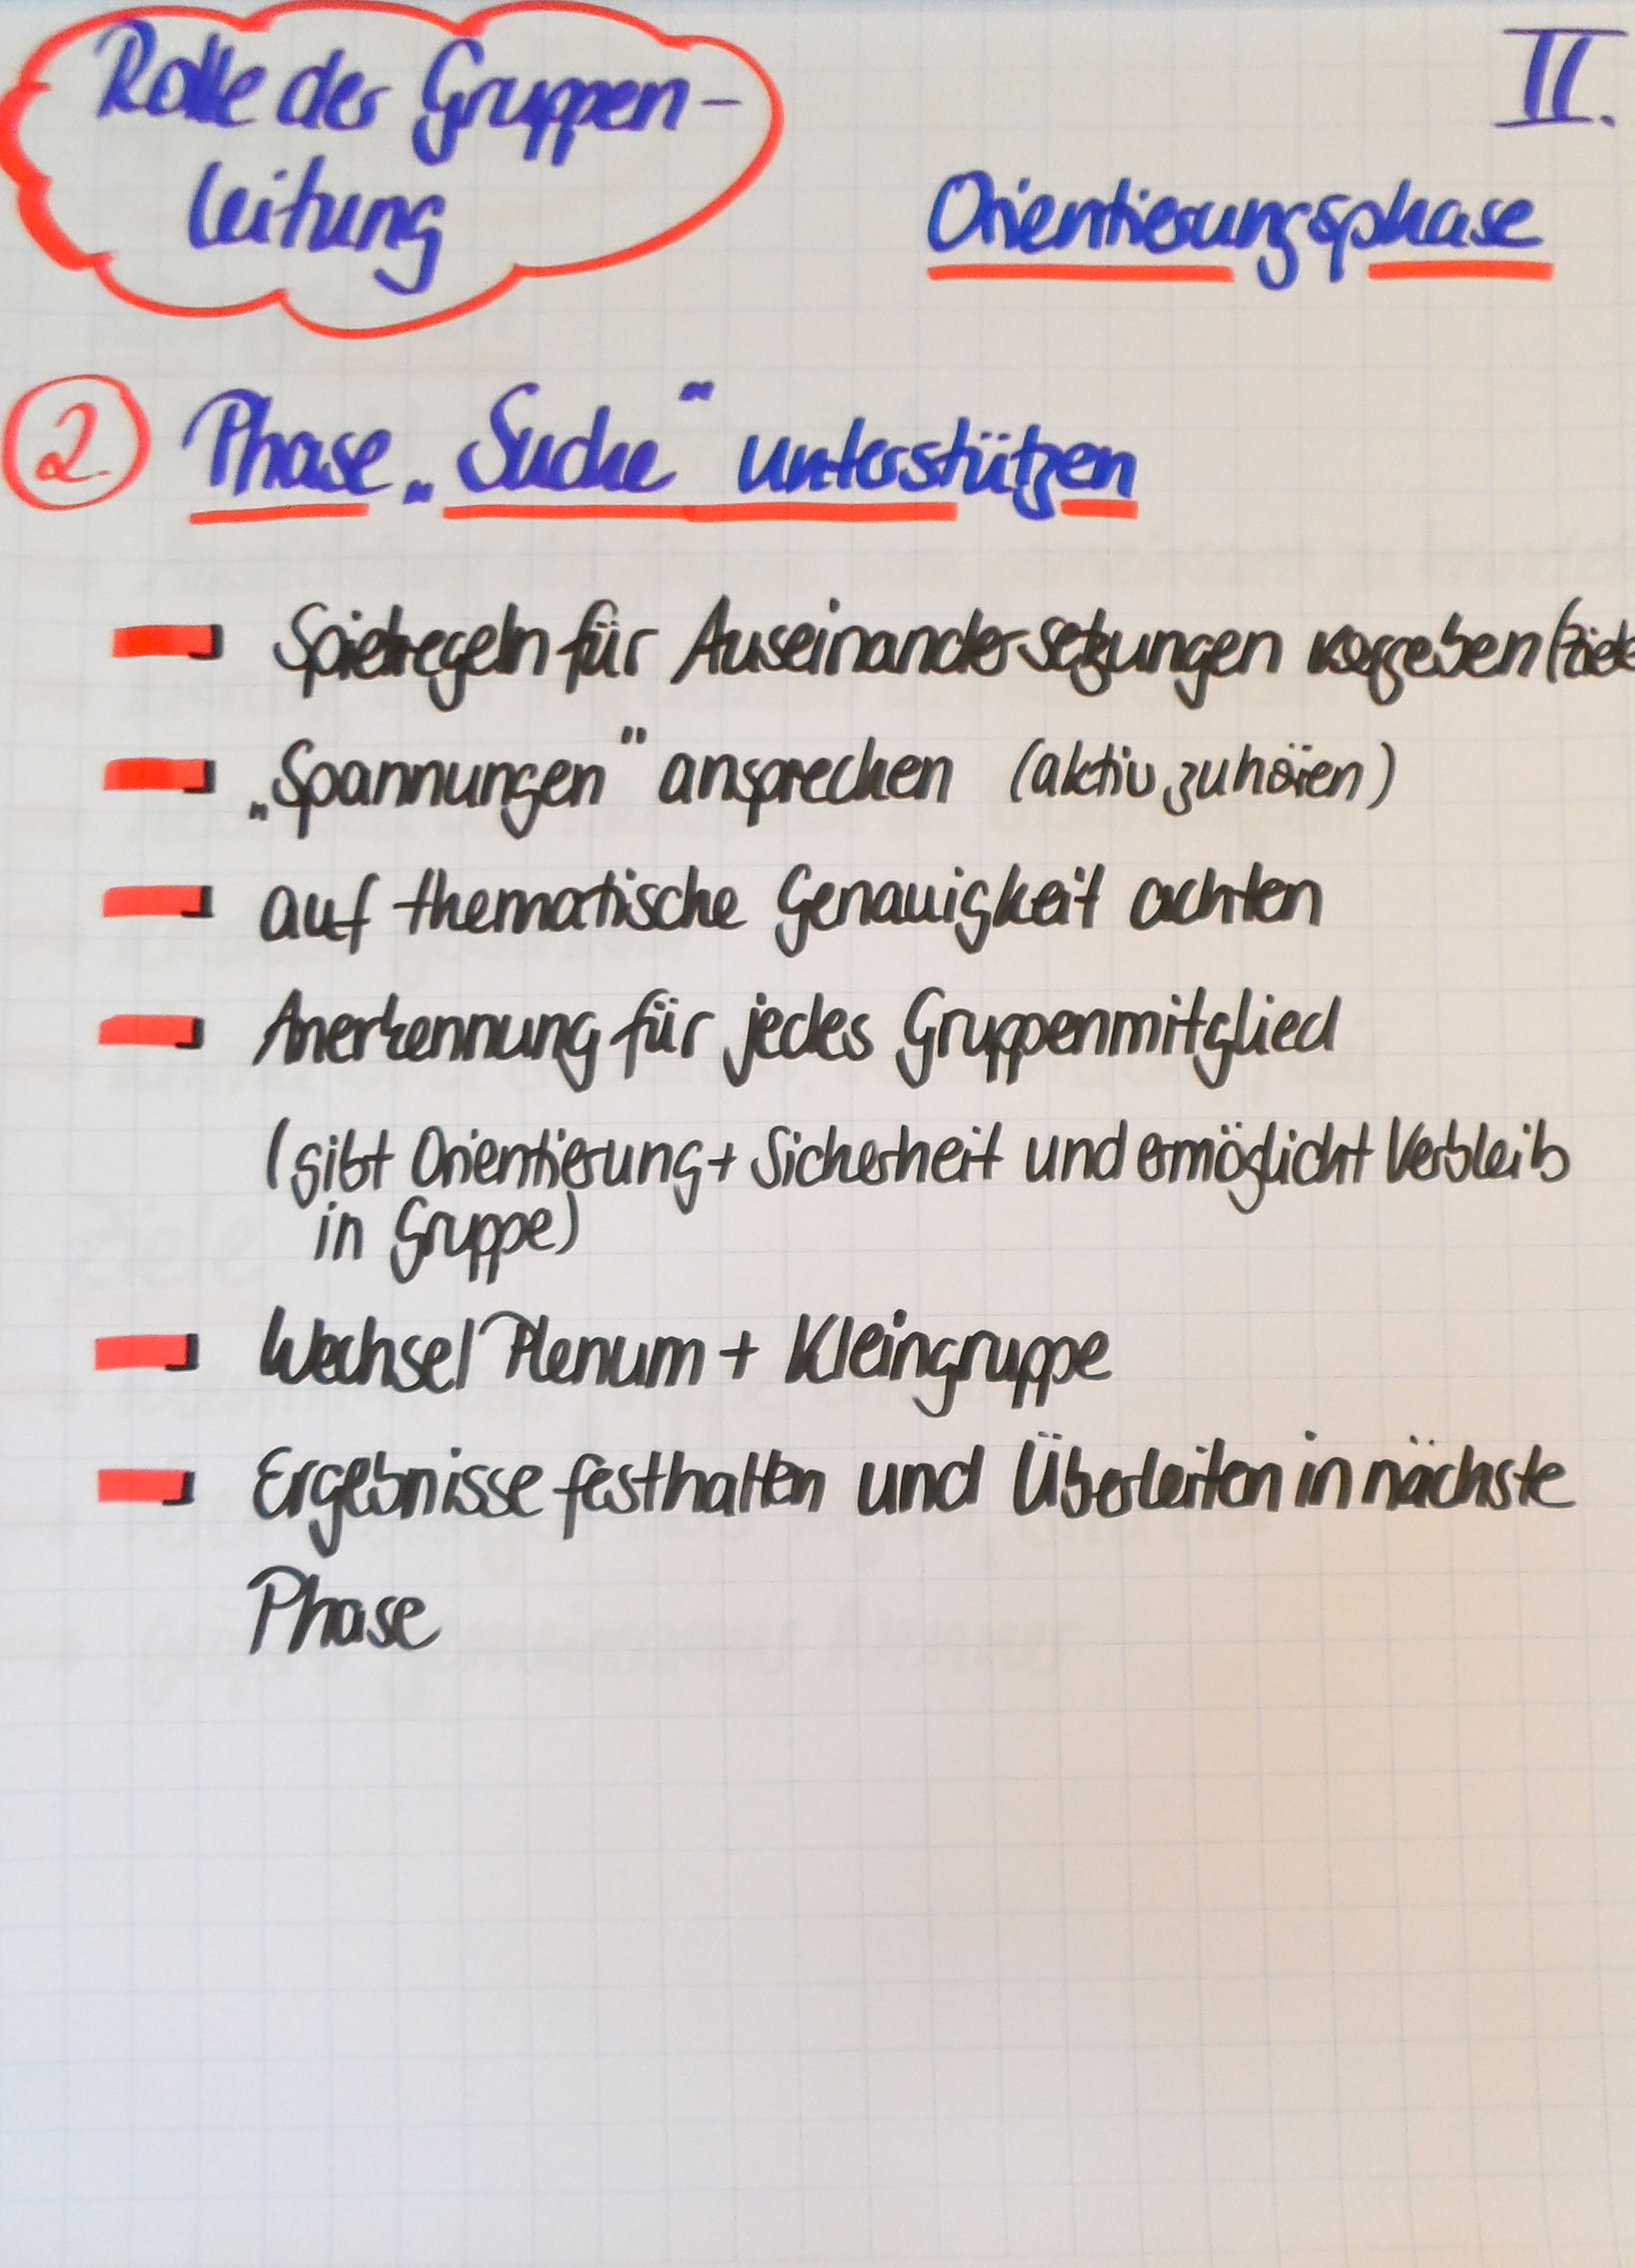 Rolle der Gruppen-
leitung
II.
Orientierungsphase
2 Phase „Suche" unterstützen
Spielregeln für Auseinandersetzungen vorgeben (Ziele
„Spannungen" ansprechen (aktiv zuhören)
auf thematische Genauigkeit achten
Anerkennung für jedes Gruppenmitglied
(gibt Orientierung + Sicherheit und ermöglicht Verbleib
in Gruppe)
Wechsel Plenum + Kleingruppe
Ergebnisse festhalten und Überleiten in nächste
Phase